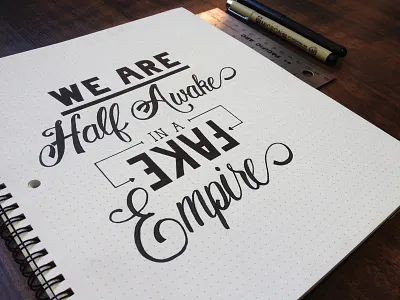 WE ARE
Half Awake
IN A
FAKE
Empire